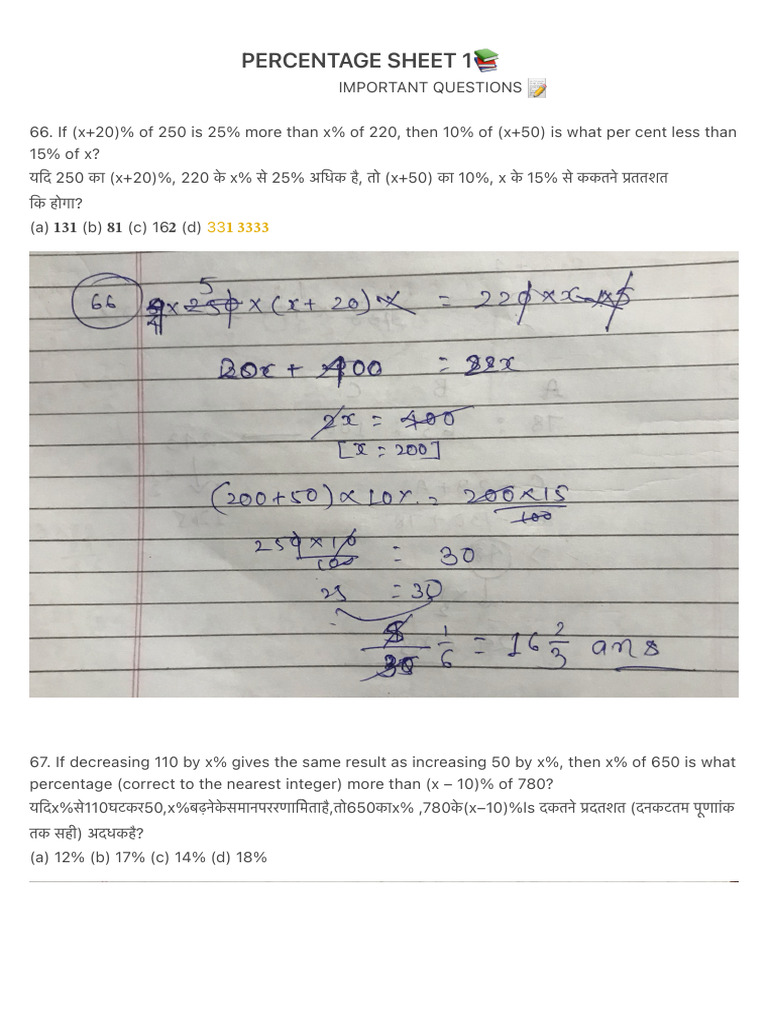 PERCENTAGE SHEET 1📚
IMPORTANT QUESTIONS 📝
66. If (x+20)% of 250 is 25% more than x% of 220, then 10% of (x+50) is what per cent less than
15% of x?
यदि 250 का (x+20)%, 220 के x% से 25% अधिक है, तो (x+50) का 10%, x के 15% से ककतने प्रततशत
कि होगा?
(a) 131 (b) 81 (c) 162 (d) 331 3333
66
5
250 × (x + 20) = 220 × x
20x + 400 = 22x
2x = 400
[x = 200]
(200+50) × 10% = 200×15
100
250 × 10 = 30
100
25 = 30
5 1 = 16 2 ans
30 6 3
67. If decreasing 110 by x% gives the same result as increasing 50 by x%, then x% of 650 is what
percentage (correct to the nearest integer) more than (x – 10)% of 780?
यदिx%से110घटकर50,x%बढ़नेकेसमानपररणामिताहै,तो650काx% ,780के(x–10)%ls दकतने प्रदतशत (दनकटतम पूणाांक
तक सही) अदधकहै?
(a) 12% (b) 17% (c) 14% (d) 18%